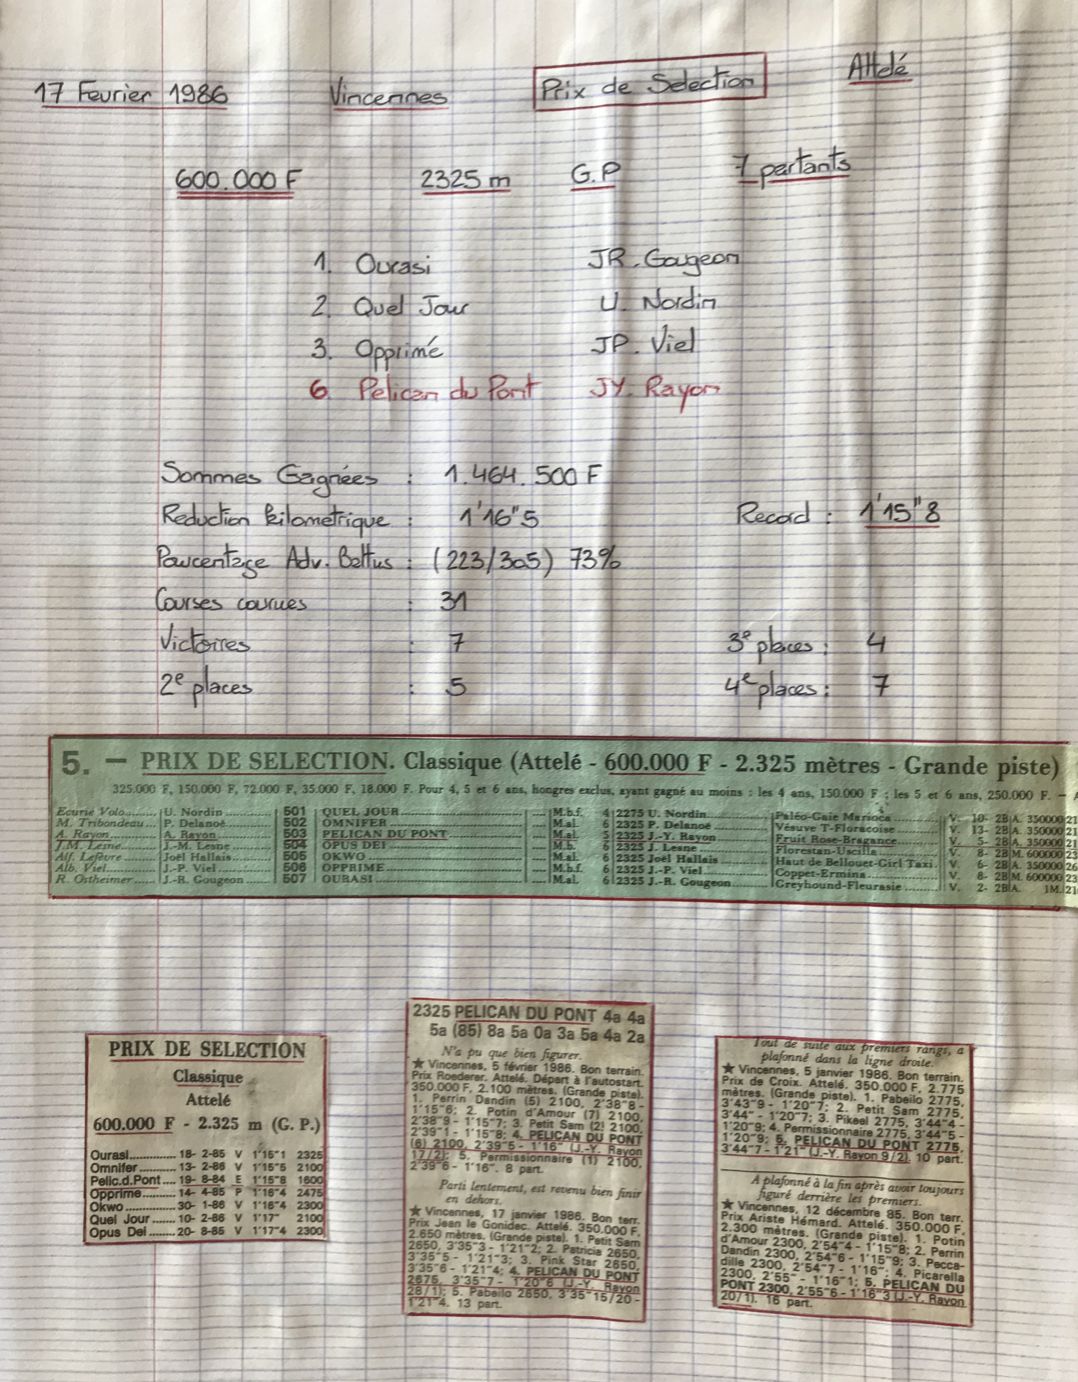 17 Fevrier 1986 Vincennes Prix de Selection Attelé
600.000 F 2325 m G.P 7 partants
1. Ourasi JR. Gougeon
2. Quel Jour U. Nordin
3. Opprimé JP. Viel
6. Pelican du Pont JY. Rayon
Sommes Gagnées : 1.464.500 F
Reduction Kilometrique : 1'16"5 Record : 1'15"8
Pourcentage Adv. Battus : (223/305) 73%
Courses courues : 31
Victoires : 7 3e places : 4
2e places : 5 4e places : 7
5. — PRIX DE SELECTION. Classique (Attelé - 600.000 F - 2.325 mètres - Grande piste)
325.000 F, 150.000 F, 72.000 F, 35.000 F, 18.000 F. Pour 4, 5 et 6 ans, hongres exclus, ayant gagné au moins : les 4 ans, 150.000 F ; les 5 et 6 ans, 250.000 F. —
Ecurie Volo U. Nordin 501 QUEL JOUR M.b.f. 4 2275 U. Nordin Paléo-Gaie Marioca V. 10- 2B A. 350000 21
M. Tribondeau P. Delanoë 502 OMNIFER M.al. 6 2325 P. Delanoë Vésuve T-Floracoise V. 13- 2B A. 350000 21
A. Rayon A. Rayon 503 PELICAN DU PONT M.al. 5 2325 J.-Y. Rayon Fruit Rose-Bragance V. 5- 2B A. 350000 21
J.M. Lesne J.-M. Lesne 504 OPUS DEI M.b. 6 2325 J. Lesne Florestan-Uscilla V. 8- 2B M. 600000 23
Alf. Lefèvre Joël Hallais 505 OKWO M.al. 6 2325 Joël Hallais Haut de Bellouet-Girl Taxi V. 6- 2B A. 350000 26
Alb. Viel J.-P. Viel 506 OPPRIME M.b.f. 6 2325 J.-P. Viel Coppet-Ermina V. 8- 2B M. 600000 23
R. Ostheimer J.-R. Gougeon 507 OURASI M.al. 6 2325 J.-R. Gougeon Greyhound-Fleurasie V. 2- 2B A. 1M. 21
PRIX DE SELECTION
Classique
Attelé
600.000 F - 2.325 m (G. P.)
Ourasi 18- 2-86 V 1'15"1 2325
Omnifer 13- 2-86 V 1'15"5 2100
Pelic.d.Pont 19- 8-84 E 1'15"8 1600
Opprime 14- 4-85 P 1'16"4 2475
Okwo 30- 1-86 V 1'16"4 2300
Quel Jour 10- 2-86 V 1'17" 2100
Opus Dei 20- 8-85 V 1'17"4 2300
2325 PELICAN DU PONT 4a 4a
5a (85) 8a 5a 0a 3a 5a 4a 2a
N'a pu que bien figurer.
★ Vincennes, 5 février 1986. Bon terrain.
Prix Roederer. Attelé. Départ à l'autostart.
350.000 F, 2.100 mètres. (Grande piste).
1. Perrin Dandin (5) 2100, 2'38"8 -
1'15"6; 2. Potin d'Amour (7) 2100,
2'38"9 - 1'15"7; 3. Petit Sam (2) 2100,
2'39"1 - 1'15"8; 4. PELICAN DU PONT
(6) 2100, 2'39"5 - 1'16" (J.-Y. Rayon
17/2); 5. Permissionnaire (1) 2100,
2'39"6 - 1'16". 8 part.
Parti lentement, est revenu bien finir
en dehors.
★ Vincennes, 17 janvier 1986. Bon terr.
Prix Jean le Gonidec. Attelé. 350.000 F.
2.650 mètres. (Grande piste). 1. Petit Sam
2650, 3'35"3 - 1'21"2; 2. Patricia 2650,
3'35"5 - 1'21"3; 3. Pink Star 2650,
3'35"6 - 1'21"4; 4. PELICAN DU PONT
2675, 3'35"7 - 1'20"6 (J.-Y. Rayon
28/1); 5. Pabello 2650, 3'35"15/20 -
1'21"4. 13 part.
Tout de suite aux premiers rangs, a
plafonné dans la ligne droite.
★ Vincennes, 5 janvier 1986. Bon terrain.
Prix de Croix. Attelé. 350.000 F, 2.775
mètres. (Grande piste). 1. Pabello 2775,
3'43"9 - 1'20"7; 2. Petit Sam 2775,
3'44" - 1'20"7; 3. Pikeel 2775, 3'44"4 -
1'20"9; 4. Permissionnaire 2775, 3'44"5 -
1'20"9; 5. PELICAN DU PONT 2775,
3'44"7 - 1'21" (J.-Y. Rayon 9/2). 10 part.
A plafonné à la fin après avoir toujours
figuré derrière les premiers.
★ Vincennes, 12 décembre 85. Bon terr.
Prix Ariste Hémard. Attelé. 350.000 F.
2.300 mètres. (Grande piste). 1. Potin
d'Amour 2300, 2'54"4 - 1'15"8; 2. Perrin
Dandin 2300, 2'54"6 - 1'15"9; 3. Pecca-
dille 2300, 2'54"7 - 1'16"; 4. Picarella
2300, 2'55" - 1'16"1; 5. PELICAN DU
PONT 2300, 2'55"6 - 1'16"3 (J.-Y. Rayon
20/1). 16 part.